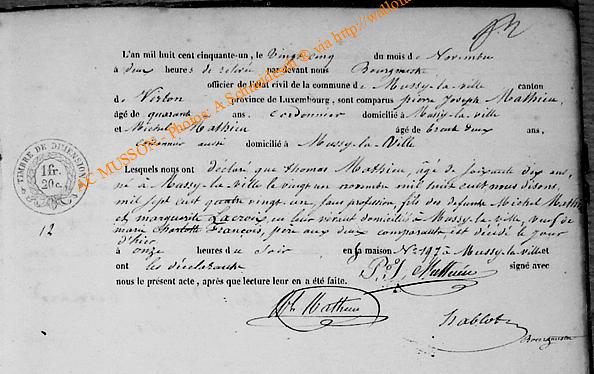 L'an mil huit cent cinquante-un, le vingt cinq du mois de Novembre
à deux heures de relevée par devant nous Bourgmestre
officier de l'état civil de la commune de Mussy-la-ville canton
de Virton province de Luxembourg, sont comparus pierre Joseph Mathieu,
âgé de quarante ans, cordonnier domicilié à Mussy-la-ville
et Michel Mathieu âgé de trente deux ans,
cordonnier aussi domicilié à Mussy-la-Ville
Lesquels nous ont déclaré que thomas Mathieu, âgé de soixante dix ans,
né à Mussy-la-Ville le vingt un novembre mil huit cent nous disons,
mil sept cent quatre vingt un, sans profession, fils des defunts Michel Mathieu
et marguerite Lacroix, en leur vivant domiciliés à Mussy-la-ville, veuf de
marie Charlotte François, père aux deux comparants, est décédé le jour
d'hier
à onze heures du soir en sa maison No 197 à Mussy-la-ville et
ont les déclarants signé avec
nous le présent acte, après que lecture leur en a été faite.
P. J. Mathieu
Mathieu
Bourgmestre
TIMBRE DE DIMENSION
1 fr.
20 c.
12
AC MUSSON - Photos: A Schaudiesen © via http://wallo